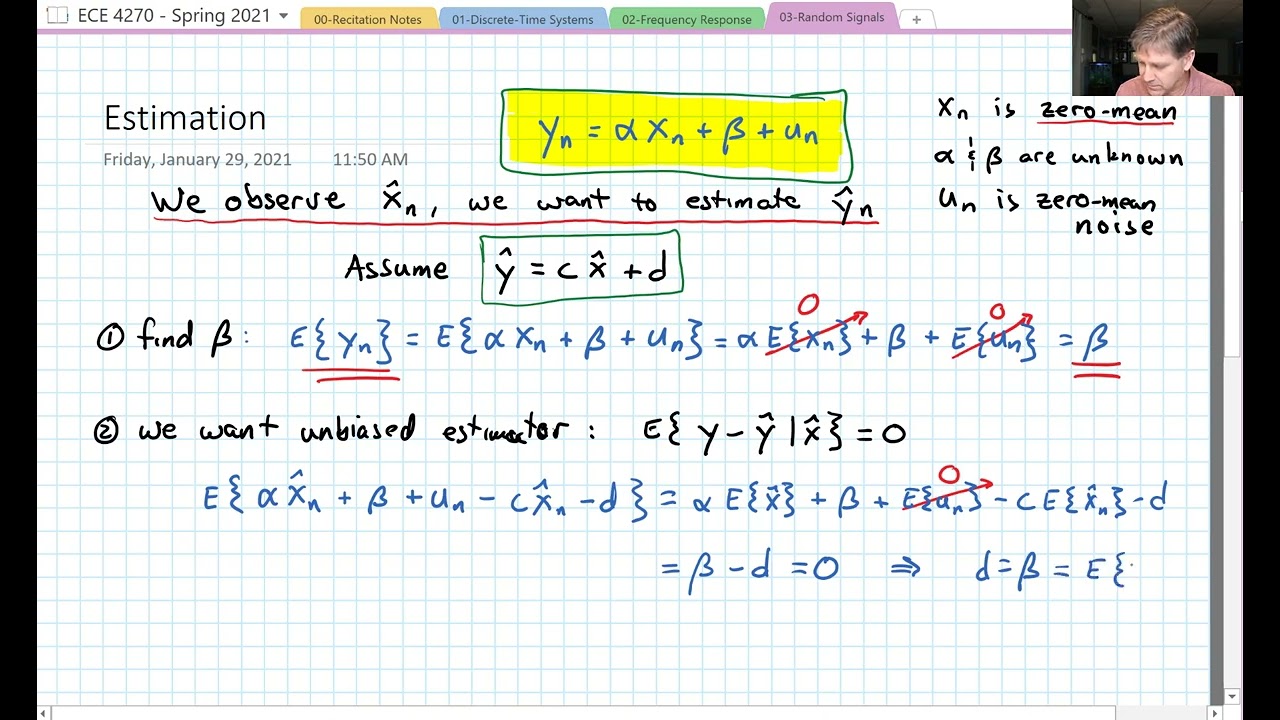 ECE 4270 - Spring 2021
00-Recitation Notes
01-Discrete-Time Systems
02-Frequency Response
03-Random Signals
+
Estimation
Friday, January 29, 2021 11:50 AM
yₙ = α xₙ + β + uₙ
xₙ is zero-mean
α & β are unknown
uₙ is zero-mean
noise
We observe x̂ₙ, we want to estimate ŷₙ
Assume ŷ = c x̂ + d
① find β: E{yₙ} = E{α xₙ + β + uₙ} = α E{xₙ} 0 + β + E{uₙ} 0 = β
② we want unbiased estimator: E{y - ŷ | x̂} = 0
E{α x̂ₙ + β + uₙ - c x̂ₙ - d} = α E{x̂} + β + E{uₙ} 0 - c E{x̂ₙ} - d
= β - d = 0 ⇒ d = β = E{